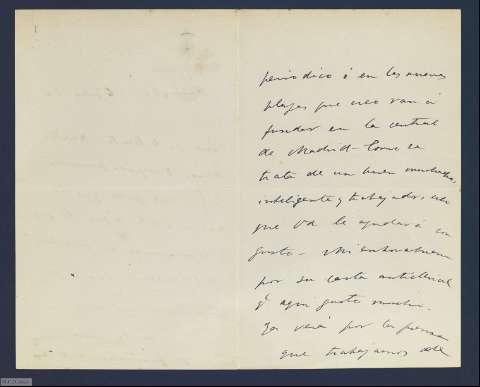 periódico ó en las nuevas
plazas que creo van á
fundar en la central
de Madrid - Como se
trata de un buen muchacho,
inteligente y trabajador, creo
que Vd le ayudará con
gusto - Mi enhorabuena
por su carta anticlerical
q̃ aqui gustó mucho.
Ya verá por la prensa
que trabajamos